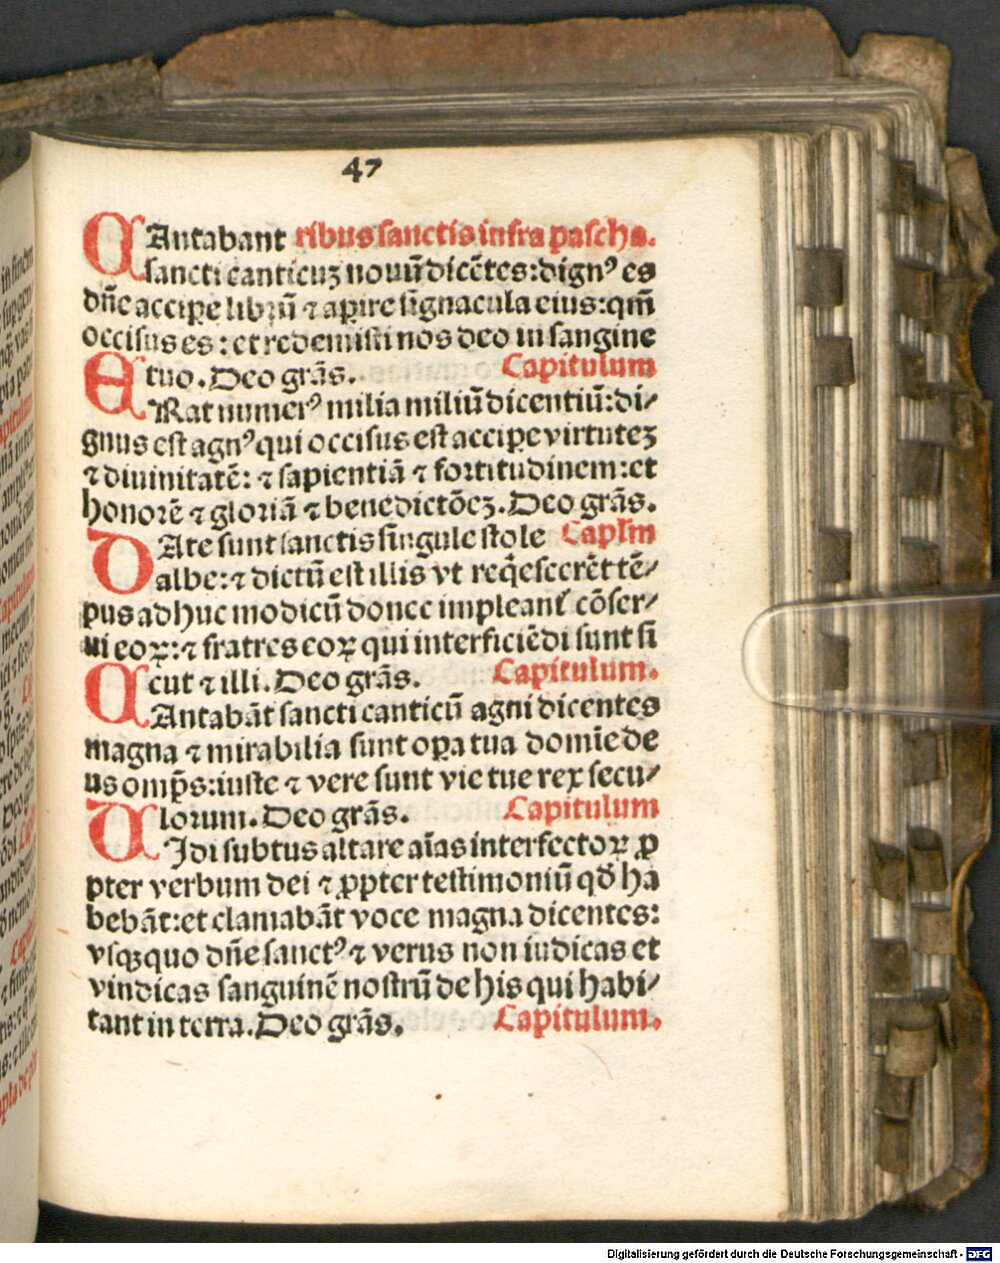 47
CAntabant ribus sanctis infra pascha.
sancti canticuꝫ nouū dicētes: dignꝰ es
dn̄e accipe librū ⁊ apire signacula eius: qm̄
occisus es: et redemisti nos deo in sangine
tuo. Deo grās. Capitulum
ERat numerꝰ milia miliū dicentiū: di⸗
gnus est agnꝰ qui occisus est accipe virtuteꝫ
⁊ diuinitatē: ⁊ sapientiā ⁊ fortitudinem: et
honorē ⁊ gloriā ⁊ benedictōeꝫ. Deo grās.
DAte sunt sanctis singule stole Capl'm
albe: ⁊ dictū est illis vt reqēscerēt tē⸗
pus adhuc modicū donec impleant̄ cōser⸗
ui eoꝝ: ⁊ fratres eoꝝ qui interficiēdi sunt si
cut ⁊ illi. Deo grās. Capitulum.
CAntabāt sancti canticū agni dicentes
magna ⁊ mirabilia sunt oꝑa tua domīe de
us omp̄s: iuste ⁊ vere sunt vie tue rex secu⸗
lorum. Deo grās. Capitulum
UJdi subtus altare aīas interfectoꝝ ꝓ
pter verbum dei ⁊ ꝓpter testimoniū qd̄ ha
bebāt: et clamabāt voce magna dicentes:
vsqꝫquo dn̄e sanctꝰ ⁊ verus non iudicas et
vindicas sanguinē nostrū de his qui habi⸗
tant in terra. Deo grās. Capitulum.
Digitalisierung gefördert durch die Deutsche Forschungsgemeinschaft - DFG